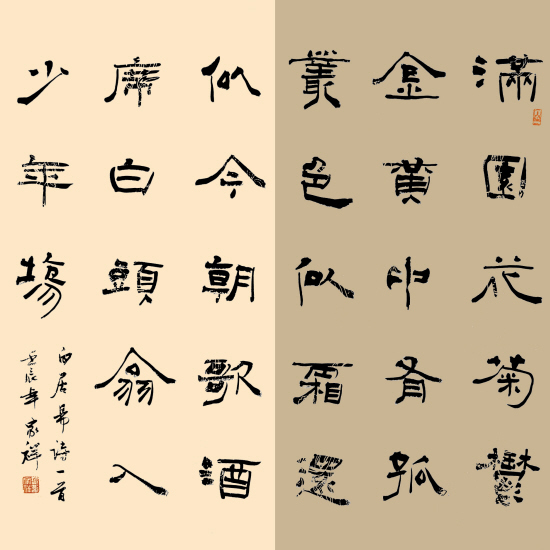 滿園花菊鬱
金黃中有孤
叢色似霜還
似今朝歌酒
席白頭翁入
少年場
白居易詩一首
壬辰年家祥